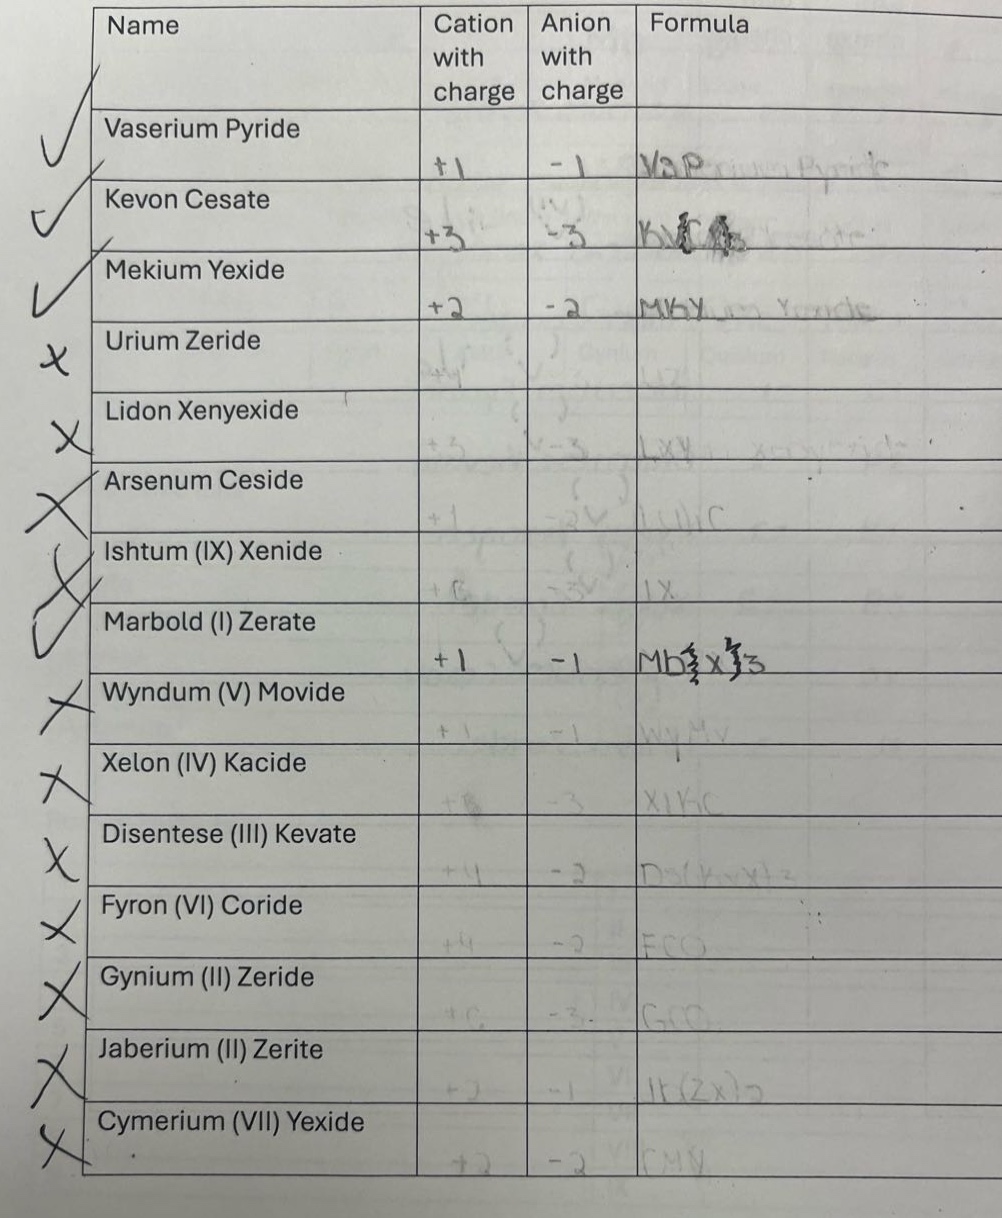 Name Cation Anion Formula
with with
charge charge
Vaserium Pyride
+1 -1 VaP
Kevon Cesate
+3 -3
Mekium Yexide
+2 -2 MkY
Urium Zeride
Lidon Xenyexide
+3 -3 LXY
Arsenum Ceside
+1
Ishtum (IX) Xenide
IX
Marbold (I) Zerate
+1 -1 Mb{x}3
Wyndum (V) Movide
+1 -1 WyMv
Xelon (IV) Kacide
-3 XlKC
Disentese (III) Kevate
+4 -2 Ds(KvX)2
Fyron (VI) Coride
+4 -2 FCO
Gynium (II) Zeride
-3
Jaberium (II) Zerite
-1
Cymerium (VII) Yexide
+2 -2 CMY